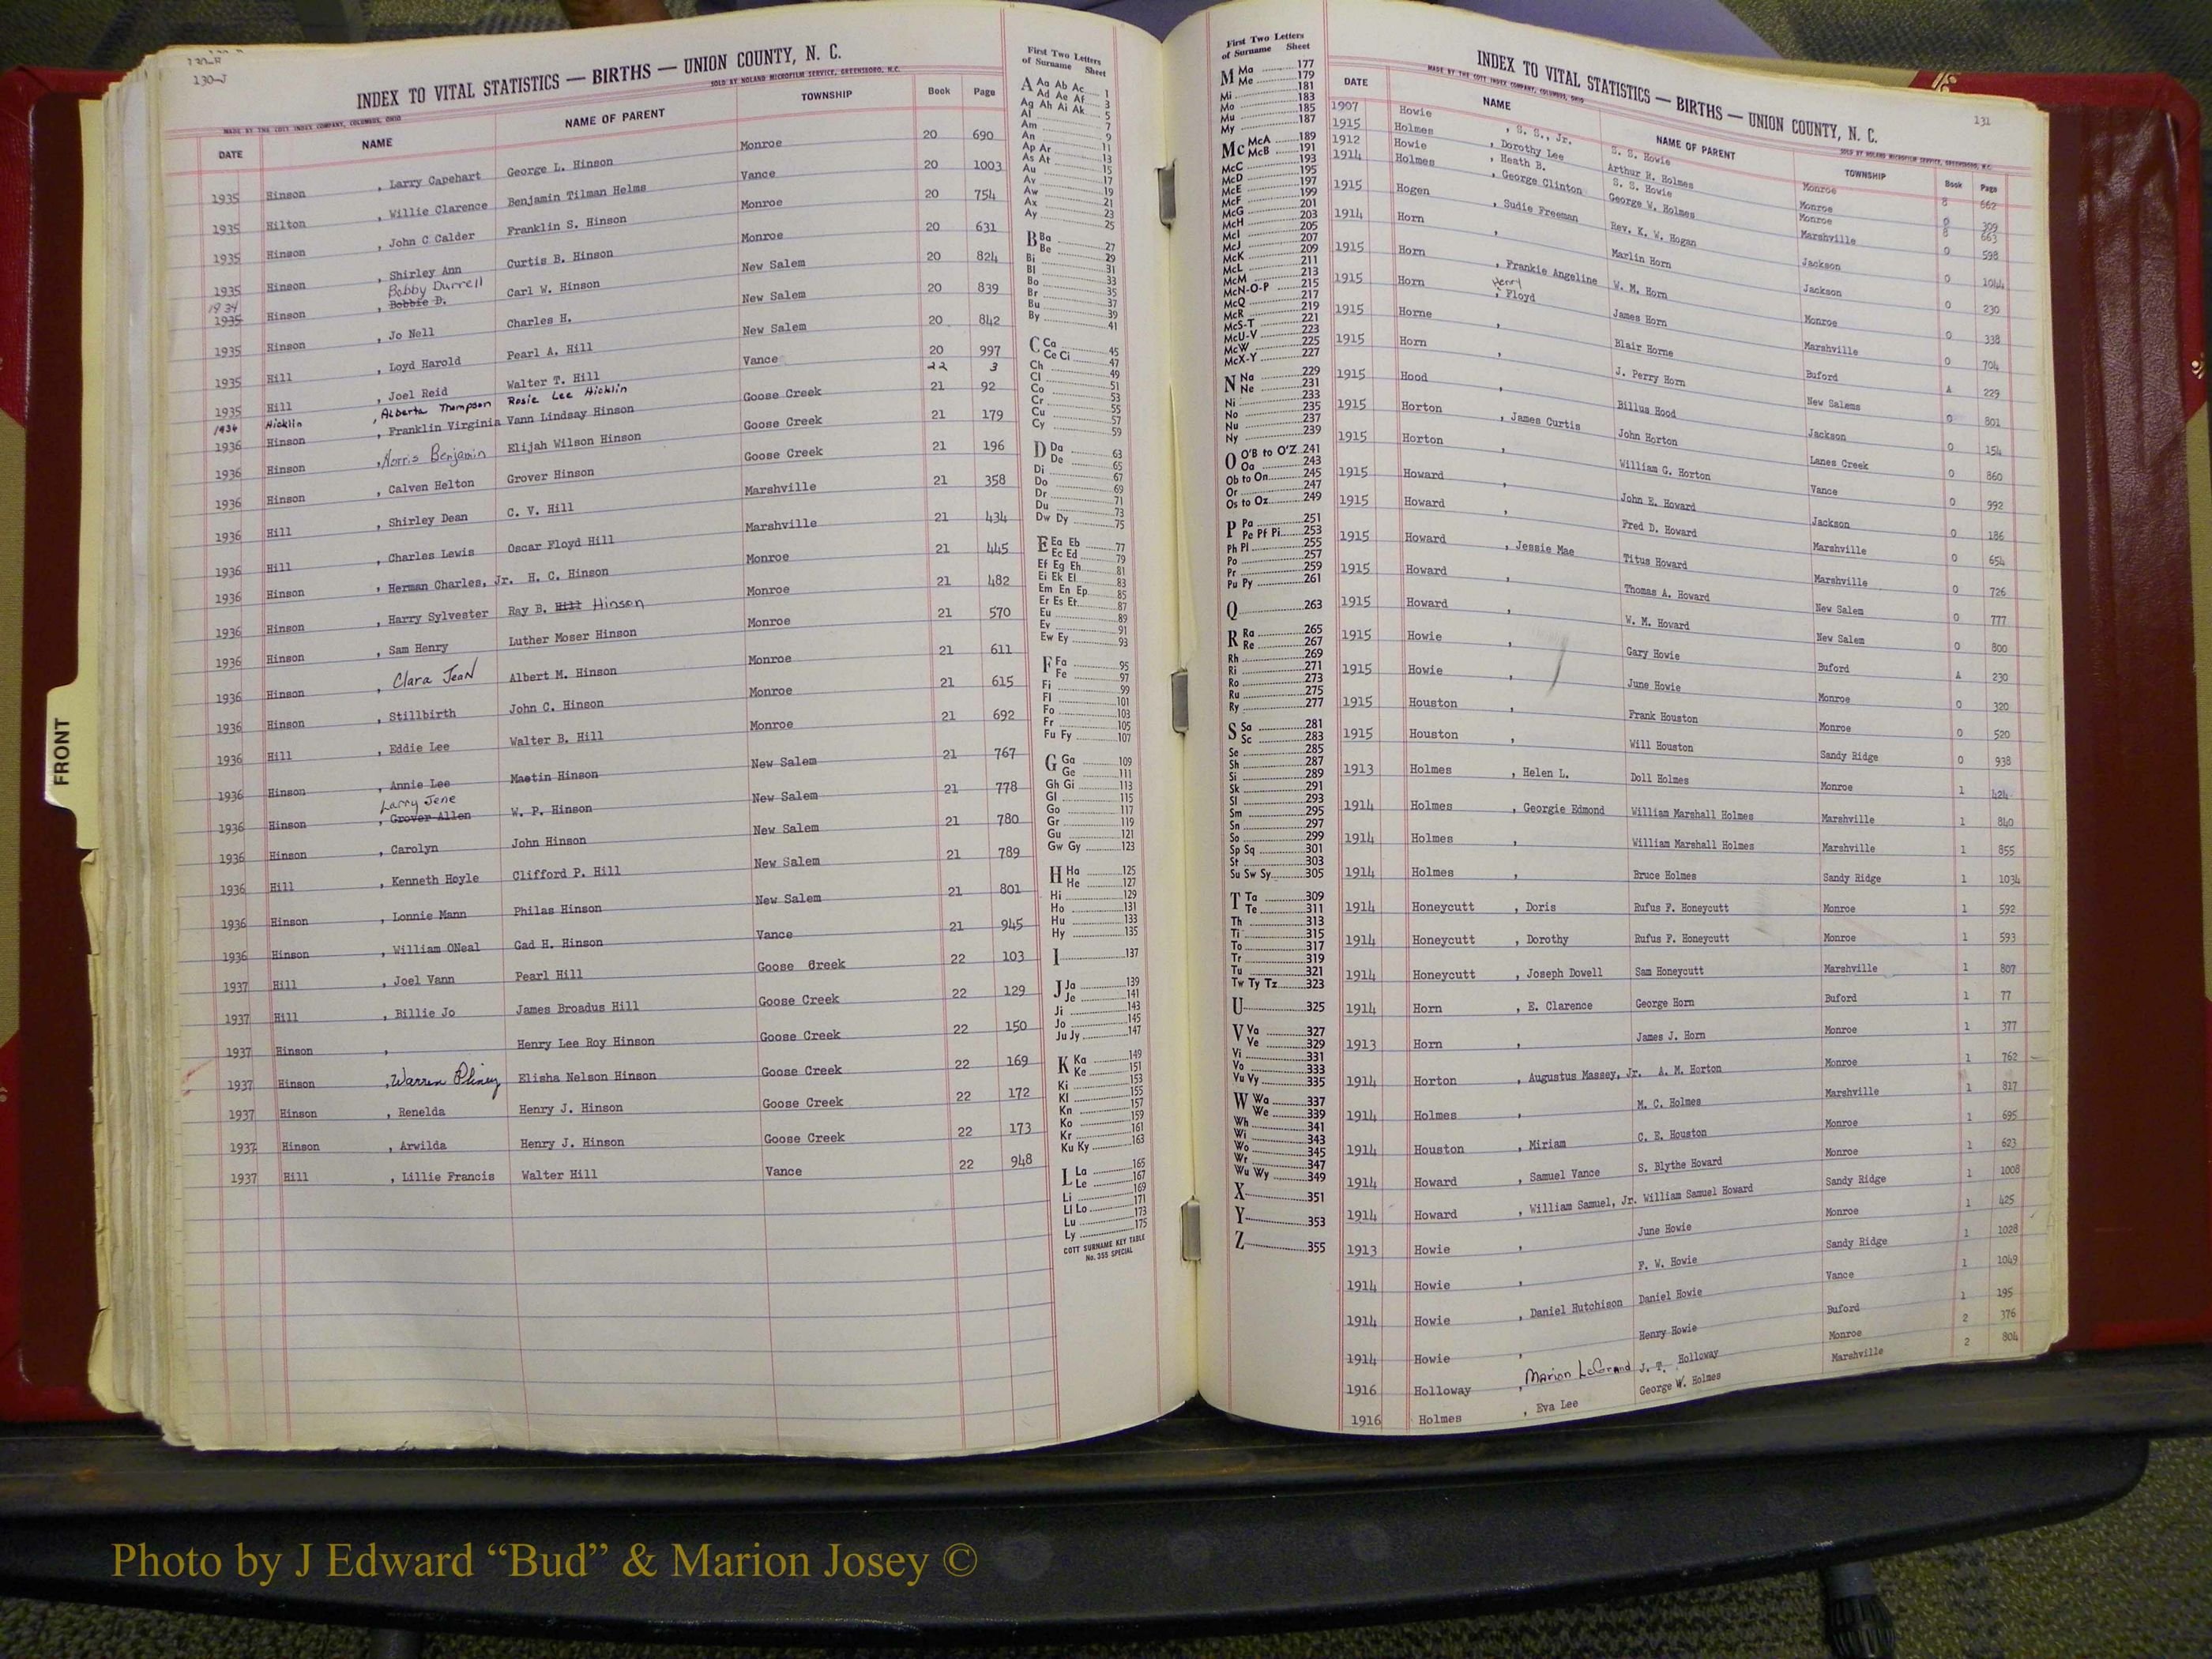 130-J
INDEX TO VITAL STATISTICS — BIRTHS — UNION COUNTY, N. C.
MADE BY THE COTT INDEX COMPANY, COLUMBUS, OHIO SOLD BY NOLAND MICROFILM SERVICE, GREENSBORO, N.C.
DATE NAME NAME OF PARENT TOWNSHIP Book Page
1935 Hinson , Larry Capehart George L. Hinson Monroe 20 690
1935 Hilton , Willie Clarence Benjamin Tilman Helms Vance 20 1003
1935 Hinson , John C Calder Franklin S. Hinson Monroe 20 754
1935 Hinson , Shirley Ann Curtis B. Hinson Monroe 20 631
1934 1935 Hinson , Bobby Durrell Bobbie D. Carl W. Hinson New Salem 20 824
1935 Hinson , Jo Nell Charles H. New Salem 20 839
1935 Hill , Loyd Harold Pearl A. Hill New Salem 20 842
1935 Hill , Joel Reid Walter T. Hill Vance 20 997
1936 Hicklin , Alberta Thompson Rosie Lee Hicklin 22 3
1936 Hinson , Franklin Virginia Vann Lindsay Hinson Goose Creek 21 92
1936 Hinson , Norris Benjamin Elijah Wilson Hinson Goose Creek 21 179
1936 Hinson , Calven Helton Grover Hinson Goose Creek 21 196
1936 Hill , Shirley Dean C. V. Hill Marshville 21 358
1936 Hill , Charles Lewis Oscar Floyd Hill Marshville 21 434
1936 Hinson , Herman Charles, Jr. H. C. Hinson Monroe 21 445
1936 Hinson , Harry Sylvester Ray B. Hill Hinson Monroe 21 482
1936 Hinson , Sam Henry Luther Moser Hinson Monroe 21 570
1936 Hinson , Clara Jean Albert M. Hinson Monroe 21 611
1936 Hinson , Stillbirth John C. Hinson Monroe 21 615
1936 Hill , Eddie Lee Walter B. Hill Monroe 21 692
1936 Hinson , Annie Lee Maetin Hinson New Salem 21 767
1936 Hinson , Larry Jene Grover Allen W. P. Hinson New Salem 21 778
1936 Hinson , Carolyn John Hinson New Salem 21 780
1936 Hill , Kenneth Hoyle Clifford P. Hill New Salem 21 789
1936 Hinson , Lonnie Mann Philas Hinson New Salem 21 801
1936 Hinson , William ONeal Gad H. Hinson Vance 21 945
1937 Hill , Joel Vann Pearl Hill Goose Creek 22 103
1937 Hill , Billie Jo James Broadus Hill Goose Creek 22 129
1937 Hinson , Henry Lee Roy Hinson Goose Creek 22 150
1937 Hinson , Warren Pliney Elisha Nelson Hinson Goose Creek 22 169
1937 Hinson , Renelda Henry J. Hinson Goose Creek 22 172
1937 Hinson , Arwilda Henry J. Hinson Goose Creek 22 173
1937 Hill , Lillie Francis Walter Hill Vance 22 948
First Two Letters
of Surname Sheet
A Aa Ab Ac 1
Ad Ae Af 3
Ag Ah Ai Ak 5
Al 7
Am 9
An 11
Ap Ar 13
As At 15
Au 17
Av 19
Aw 21
Ax 23
Ay 25
B Ba 27
Be 29
Bi 31
Bl 33
Bo 35
Br 37
Bu 39
By 41
C Ca 45
Ce Ci 47
Ch 49
Cl 51
Co 53
Cr 55
Cu 57
Cy 59
D Da 63
De 65
Di 67
Do 69
Dr 71
Du 73
Dw Dy 75
E Ea Eb 77
Ec Ed 79
Ef Eg Eh 81
Ei Ek El 83
Em En Ep 85
Er Es Et 87
Eu 89
Ev 91
Ew Ey 93
F Fa 95
Fe 97
Fi 99
Fl 101
Fo 103
Fr 105
Fu Fy 107
G Ga 109
Ge 111
Gh Gi 113
Gl 115
Go 117
Gr 119
Gu 121
Gw Gy 123
H Ha 125
He 127
Hi 129
Ho 131
Hu 133
Hy 135
I 137
J Ja 139
Je 141
Ji 143
Jo 145
Ju Jy 147
K Ka 149
Ke 151
Ki 153
Kl 155
Kn 157
Ko 159
Kr 161
Ku Ky 163
L La 165
Le 167
Li 169
Ll Lo 171
Lu 173
Ly 175
COTT SURNAME KEY TABLE
No. 355 SPECIAL
First Two Letters
of Surname Sheet
M Ma 177
Me 179
Mi 181
Mo 183
Mu 185
My 187
Mc McA 189
McB 191
McC 193
McD 195
McE 197
McF 199
McG 201
McH 203
McI 205
McJ 207
McK 209
McL 211
McM 213
McN-O-P 215
McQ 217
McR 219
McS-T 221
McU-V 223
McW 225
McX-Y 227
N Na 229
Ne 231
Ni 233
No 235
Nu 237
Ny 239
O O'B to O'Z 241
Oa 243
Ob to On 245
Or 247
Os to Oz 249
P Pa 251
Pe Pf Pi 253
Ph Pl 255
Po 257
Pr 259
Pu Py 261
Q 263
R Ra 265
Re 267
Rh 269
Ri 271
Ro 273
Ru 275
Ry 277
S Sa 281
Sc 283
Se 285
Sh 287
Si 289
Sk 291
Sl 293
Sm 295
Sn 297
So 299
Sp Sq 301
St 303
Su Sw Sy 305
T Ta 309
Te 311
Th 313
Ti 315
To 317
Tr 319
Tu 321
Tw Ty Tz 323
U 325
V Va 327
Ve 329
Vi 331
Vo 333
Vu Vy 335
W Wa 337
We 339
Wh 341
Wi 343
Wo 345
Wr 347
Wu Wy 349
X 351
Y 353
Z 355
131
INDEX TO VITAL STATISTICS — BIRTHS — UNION COUNTY, N. C.
MADE BY THE COTT INDEX COMPANY, COLUMBUS, OHIO SOLD BY NOLAND MICROFILM SERVICE, GREENSBORO, N.C.
DATE NAME NAME OF PARENT TOWNSHIP Book Page
1907 Howie , S. S., Jr. S. S. Howie Monroe 8 662
1915 Holmes , Dorothy Lee Arthur R. Holmes Monroe 0 309
1912 Howie , Heath B. S. S. Howie Monroe 8 663
1914 Holmes , George Clinton George W. Holmes Marshville 0 598
1915 Hogen , Sudie Freeman Rev. K. W. Hogan Jackson 0 1044
1914 Horn , Marlin Horn Jackson 0 230
1915 Horn , Frankie Angeline W. M. Horn Monroe 0 338
1915 Horn , Henry Floyd James Horn Marshville 0 704
1915 Horne , Blair Horne Buford A 229
1915 Horn , J. Perry Horn New Salems 0 801
1915 Hood , Billus Hood Jackson 0 154
1915 Horton , James Curtis John Horton Lanes Creek 0 860
1915 Horton , William G. Horton Vance 0 992
1915 Howard , John E. Howard Jackson 0 186
1915 Howard , Fred D. Howard Marshville 0 654
1915 Howard , Jessie Mae Titus Howard Marshville 0 726
1915 Howard , Thomas A. Howard New Salem 0 777
1915 Howard , W. M. Howard New Salem 0 800
1915 Howie , Gary Howie Buford A 230
1915 Howie , June Howie Monroe 0 320
1915 Houston , Frank Houston Monroe 0 520
1915 Houston , Will Houston Sandy Ridge 0 938
1913 Holmes , Helen L. Doll Holmes Monroe 1 424
1914 Holmes , Georgie Edmond William Marshall Holmes Marshville 1 840
1914 Holmes , William Marshall Holmes Marshville 1 855
1914 Holmes , Bruce Holmes Sandy Ridge 1 1034
1914 Honeycutt , Doris Rufus F. Honeycutt Monroe 1 592
1914 Honeycutt , Dorothy Rufus F. Honeycutt Monroe 1 593
1914 Honeycutt , Joseph Dowell Sam Honeycutt Marshville 1 807
1914 Horn , E. Clarence George Horn Buford 1 77
1913 Horn , James J. Horn Monroe 1 377
1914 Horton , Augustus Massey, Jr. A. M. Horton Monroe 1 762
1914 Holmes , M. C. Holmes Marshville 1 817
1914 Houston , Miriam C. E. Houston Monroe 1 695
1914 Howard , Samuel Vance S. Blythe Howard Monroe 1 623
1914 Howard , William Samuel, Jr. William Samuel Howard Sandy Ridge 1 1008
1913 Howie , June Howie Monroe 1 425
1914 Howie , F. W. Howie Sandy Ridge 1 1028
1914 Howie , Daniel Hutchison Daniel Howie Vance 1 1049
1914 Howie , Henry Howie Buford 1 195
1916 Holloway , Marion LeGrand J. T. Holloway Monroe 2 376
1916 Holmes , Eva Lee George W. Holmes Marshville 2 804
FRONT
Photo by J Edward “Bud” & Marion Josey ©